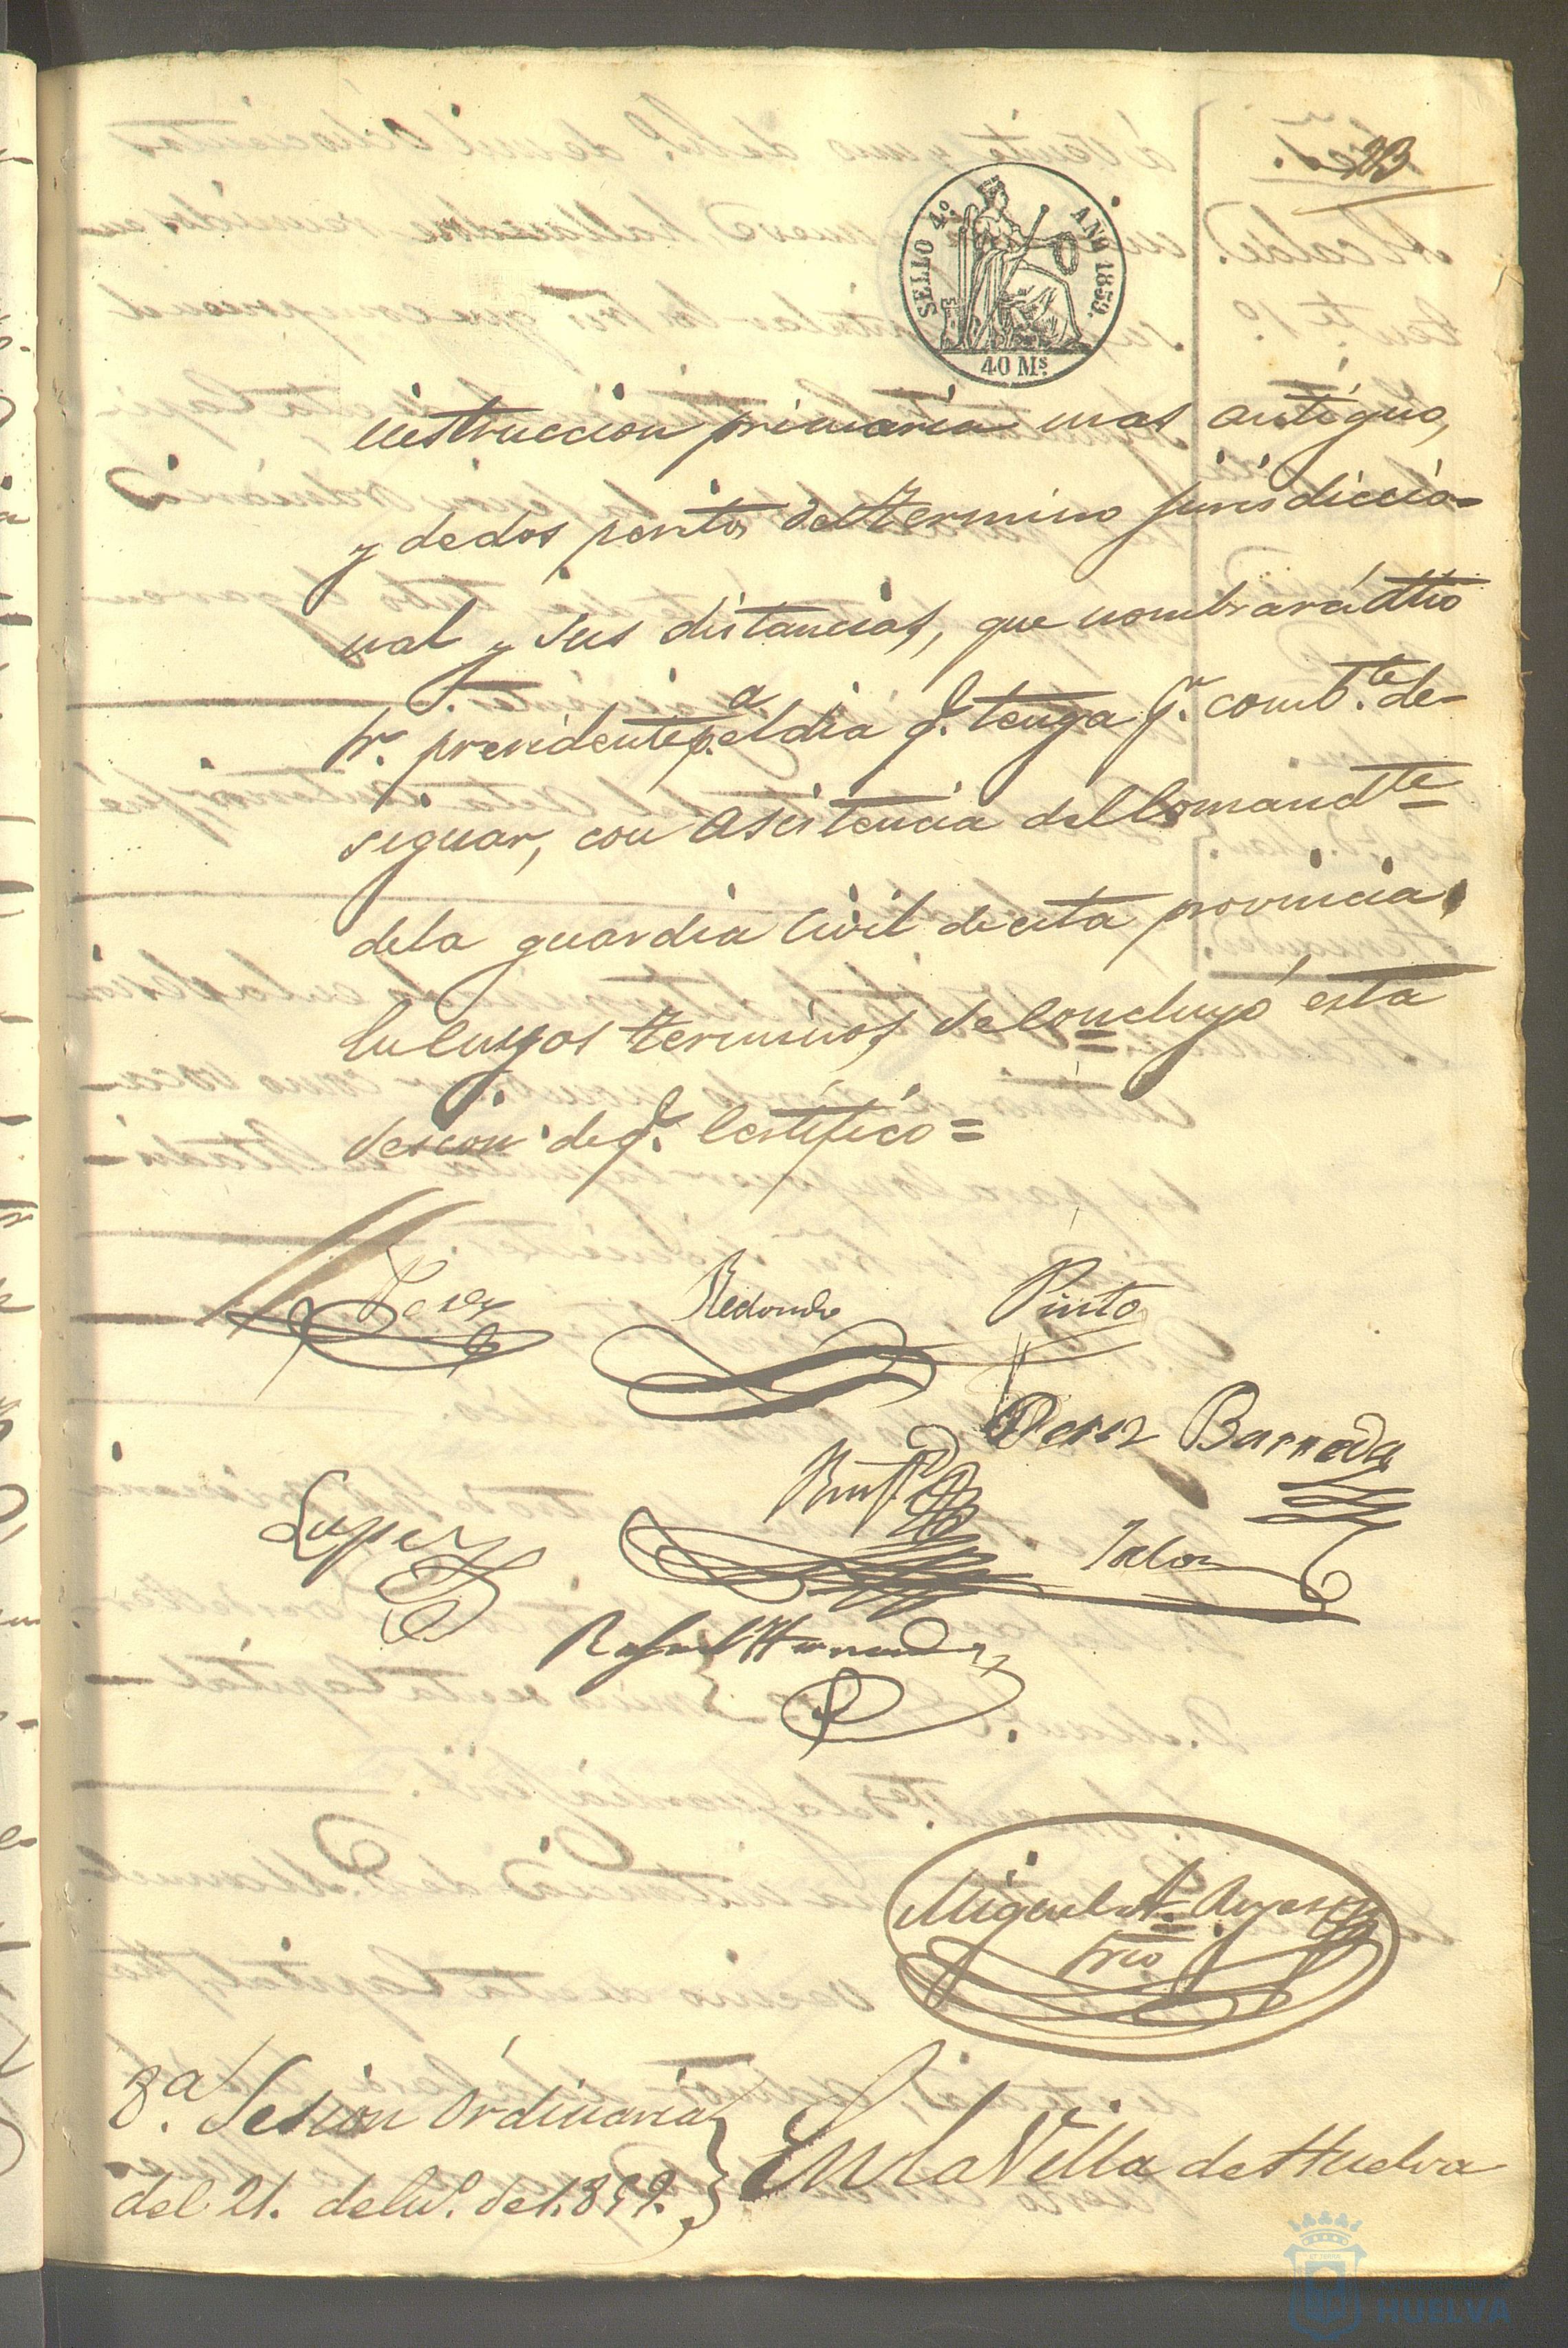 23
SELLO 4º. AÑO 1859.
40 Ms.
instruccion primaria mas antiguo,
y de dos peritos del termino jurisdiccio-
nal y sus distancias, que nombrará dho
Sr. presidente p.a el dia q.e tenga p.r comb.te de-
signar, con asistencia del Comand.te
de la guardia Civil de esta provincia.
En cuyos terminos, se concluyó esta
sesion de q.e Certifico =
Redondo Pinto
Perez Barreda
Lopez
Rafael Hernandez
Miguel A. Reyes
Srio
3.a Sesion Ordinaria
del 21. de En.o de 1.859.
En la Villa de Huelva
HUELVA